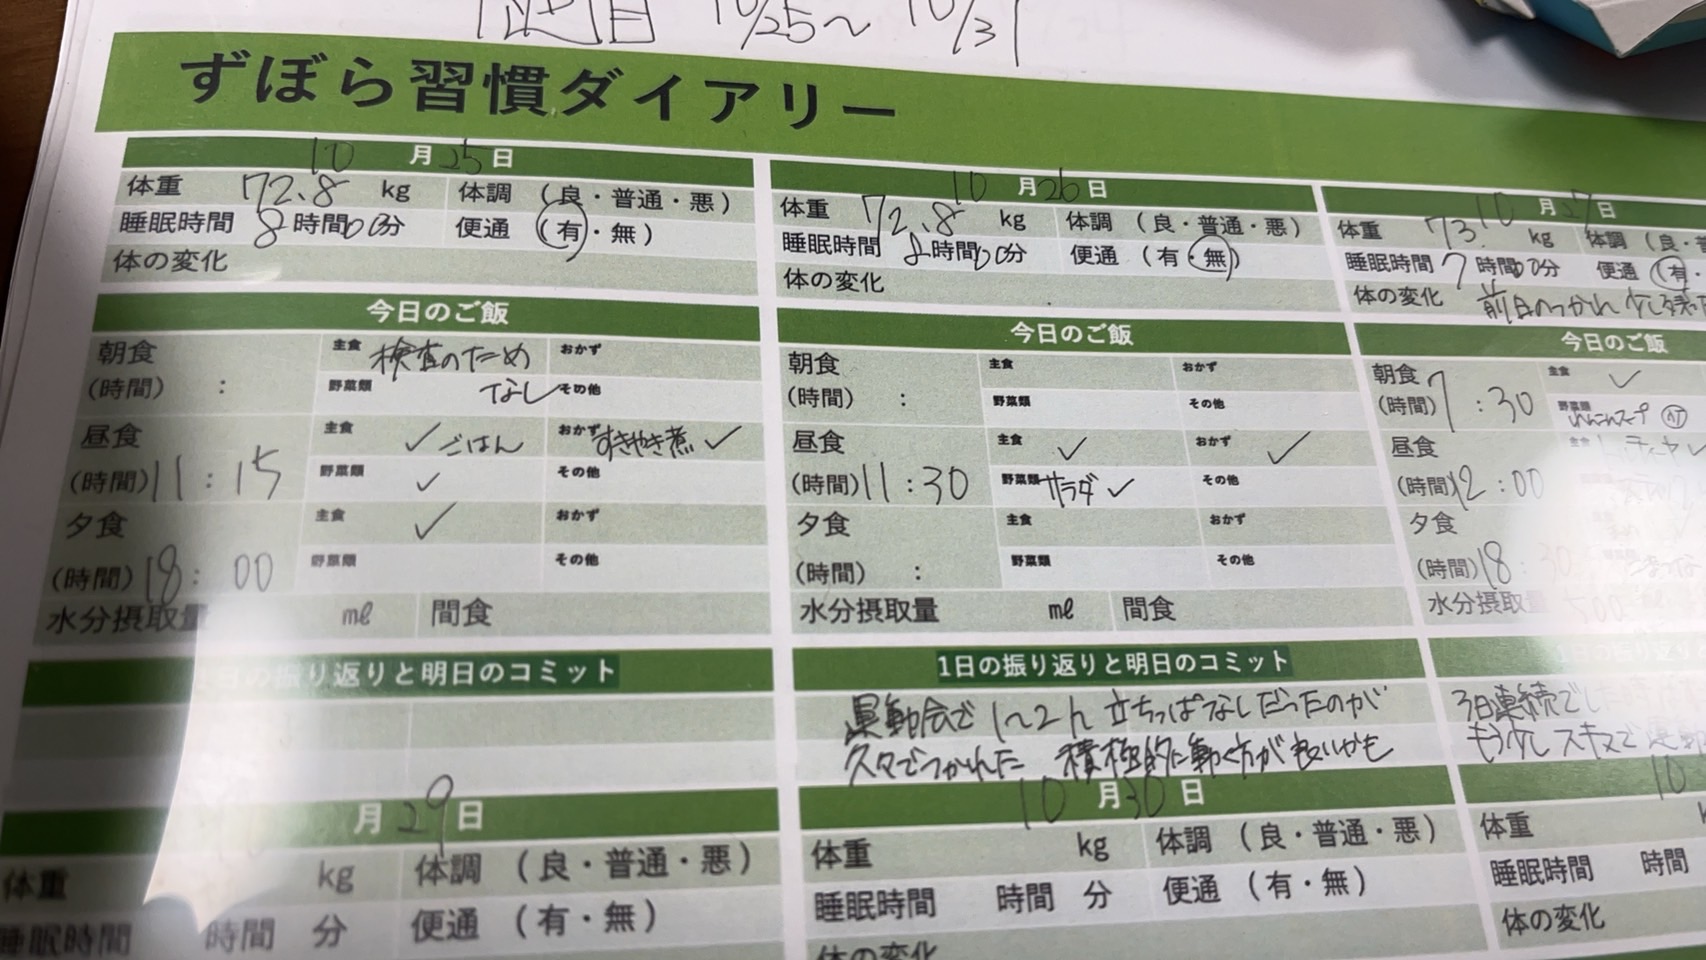 週目 10/25～10/31
ずぼら習慣ダイアリー
10月25日
体重 72.8 kg 体調 (良・普通・悪)
睡眠時間 8時間00分 便通 (有・無)
体の変化
今日のご飯
朝食 主食 検査のため おかず
(時間) : 野菜類 なし その他
昼食 主食 ✓ごはん おかず すきやき煮 ✓
(時間)11:15 野菜類 ✓ その他
夕食 主食 ✓ おかず
(時間)18:00 野菜類 その他
水分摂取量 ml 間食
の振り返りと明日のコミット
10月26日
体重 72.8 kg 体調 (良・普通・悪)
睡眠時間 8時間00分 便通 (有・無)
体の変化
今日のご飯
朝食 主食 おかず
(時間) : 野菜類 その他
昼食 主食 ✓ おかず ✓
(時間)11:30 野菜類 サラダ ✓ その他
夕食 主食 おかず
(時間) : 野菜類 その他
水分摂取量 ml 間食
1日の振り返りと明日のコミット
運動会で1~2h立ちっぱなしだったのが
久々でつかれた 積極的に動く方が良いかも
10月27日
体重 73. kg 体調 (良・
睡眠時間 7時間00分 便通 (有・
体の変化 前日のつかれ 少し残
今日のご飯
朝食 主食 ✓
(時間)7:30 野菜類
昼食 主食
(時間)12:00
夕食
(時間)18:30
水分摂取量 500
3日連続で
もう少しスキマで運動
月29日
体重 kg 体調 (良・普通・悪)
睡眠時間 時間 分 便通 (有・無)
10月30日
体重 kg 体調 (良・普通・悪)
睡眠時間 時間 分 便通 (有・無)
体の変化
10
体重
睡眠時間 時間
体の変化